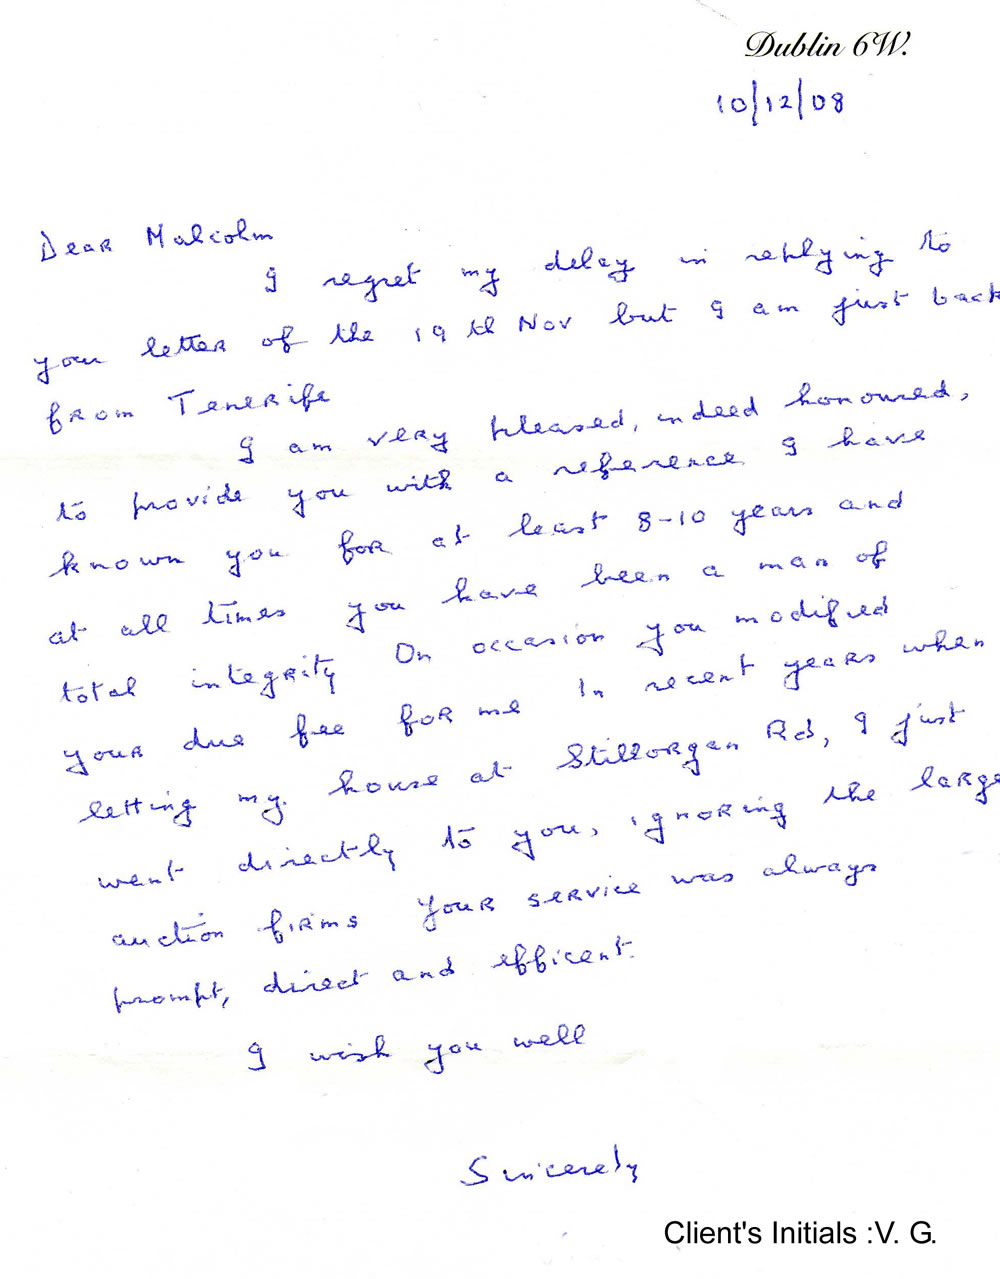 Dublin 6W.
10/12/08
Dear Malcolm
I regret my delay in replying to
your letter of the 19th Nov but I am just back
from Tenerife
I am very pleased, indeed honoured,
to provide you with a reference I have
known you for at least 8-10 years and
at all times you have been a man of
total integrity On occasion you modified
your due fee for me In recent years when
letting my house at Stillorgan Rd, I just
went directly to you, ignoring the large
auction firms Your service was always
prompt, direct and efficent.
I wish you well
Sincerely
Client's Initials :V. G.